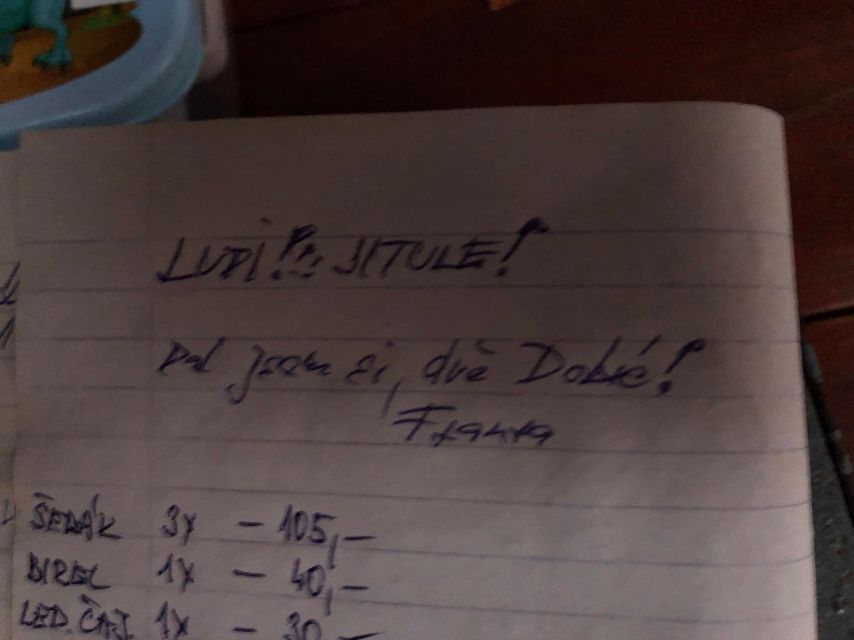 LUDI!!! JITULE!
Dal jsem si, dvě Dobré!
Franta
ŠEDÁK 3x - 105,-
BIREL 1x - 40,-
LED. ČAJ 1x - 30